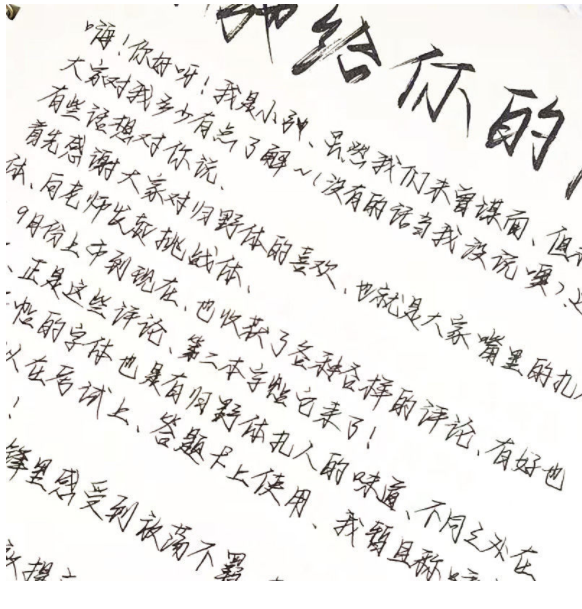 给你的
嗨！你好呀！我是小钟、虽然我们未曾谋面、但
大家对我多少有点了解～（没有的话当我没说噢）
有些话想对你说、
首先感谢大家对归野体的喜欢、也就是大家嘴里的扎
体、向老师发起挑战体、
9月份上市到现在、也收获了各种各样的评论、有好也
、正是这些评论、第二本字帖它来了！
帖的字体也是有归野体扎人的味道、不同之处在
以在考试上、答题卡上使用、我暂且称
！
锋里感受到放荡不羁